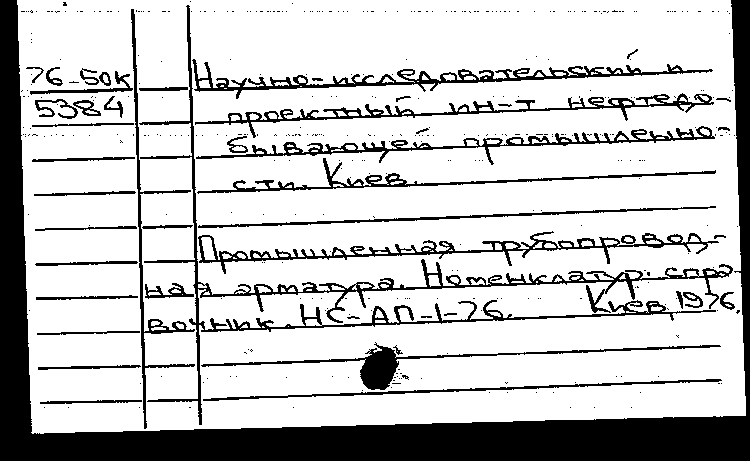 76-50к
5384
Научно-исследовательский и
проектный ин-т нефтедо-
бывающей промышленно-
сти. Киев.
Промышленная трубопровод-
ная арматура. Номенклатур. спра-
вочник. НС-АП-1-76. Киев, 1976.